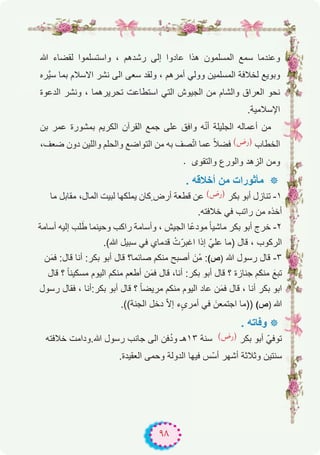 وعندما سمع المسلمون هذا عادوا إلى رشدهم ، واستسلموا لقضاء الله
وبويع لخلافة المسلمين وولي أمرهم ، ولقد سعى الى نشر الاسلام بما سيّره
نحو العراق والشام من الجيوش التي استطاعت تحريرهما ، ونشر الدعوة
الإسلامية.
من أعماله الجليلة أنّه وافق على جمع القرآن الكريم بمشورة عمر بن
الخطاب (رض) فضلاً عما اتّصف به من التواضع والحلم واللين دون ضعف،
ومن الزهد والورع والتقوى .
مأثورات من أخلاقه .
١- تنازل أبو بكر (رض) عن قطعة أرض كان يملكها لبيت المال، مقابل ما
أخذه من راتب في خلافته.
٢- خرج أبو بكر ماشياً مودعًا الجيش ، وأسامة راكب وحينما طُلب إليه أسامة
الركوب ، قال (ما عليّ إذا اغبرّتْ قدماي في سبيل الله).
٣- قال رسول الله (ص): مَن أصبح منكم صائما؟ قال أبو بكر: أنا قال: فمَن
تبعَ منكم جنازة ؟ قال أبو بكر: أنا، قال فمَن أطعم منكم اليوم مسكيناً ؟ قال
ابو بكر أنا ، قال فمَن عاد اليوم منكم مريضاً ؟ قال أبو بكر:أنا ، فقال رسول
الله (ص) ((ما اجتمعنَ في أمريء إلاّ دخل الجنة)).
وفاته .
توفيَ أبو بكر (رض) سنة ١٣هـ ودُفن الى جانب رسول الله.ودامت خلافته
سنتين وثلاثة أشهر أسّس فيها الدولة وحمى العقيدة.
٩٨